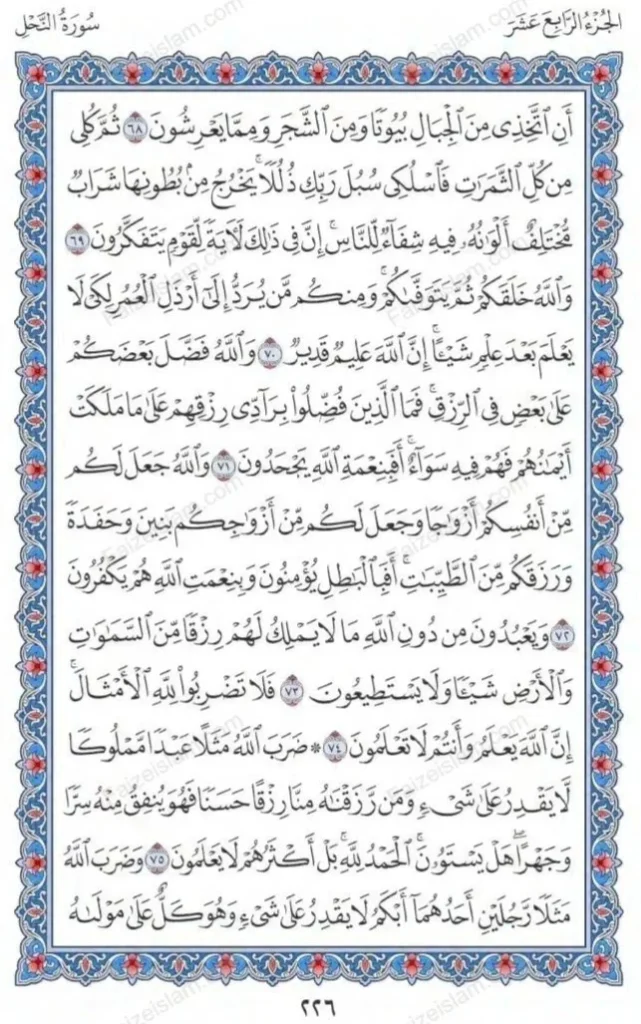 الجُزْءُ الرَّابِعَ عَشَرَ
سُورَةُ النَّحْلِ
أَنِ ٱتَّخِذِى مِنَ ٱلْجِبَالِ بُيُوتًا وَمِنَ ٱلشَّجَرِ وَمِمَّا يَعْرِشُونَ ٦٨ ثُمَّ كُلِى
مِن كُلِّ ٱلثَّمَرَٰتِ فَٱسْلُكِى سُبُلَ رَبِّكِ ذُلُلًا ۚ يَخْرُجُ مِنۢ بُطُونِهَا شَرَابٌ
مُّخْتَلِفٌ أَلْوَٰنُهُۥ فِيهِ شِفَآءٌ لِّلنَّاسِ ۚ إِنَّ فِى ذَٰلِكَ لَءَايَةً لِّقَوْمٍ يَتَفَكَّرُونَ ٦٩
وَٱللَّهُ خَلَقَكُمْ ثُمَّ يَتَوَفَّىٰكُمْ ۚ وَمِنكُم مَّن يُرَدُّ إِلَىٰٓ أَرْذَلِ ٱلْعُمُرِ لِكَىْ لَا
يَعْلَمَ بَعْدَ عِلْمٍ شَيْـًٔا ۚ إِنَّ ٱللَّهَ عَلِيمٌ قَدِيرٌ ٧٠ وَٱللَّهُ فَضَّلَ بَعْضَكُمْ
عَلَىٰ بَعْضٍ فِى ٱلرِّزْقِ ۚ فَمَا ٱلَّذِينَ فُضِّلُوا۟ بِرَآدِّى رِزْقِهِمْ عَلَىٰ مَا مَلَكَتْ
أَيْمَٰنُهُمْ فَهُمْ فِيهِ سَوَآءٌ ۚ أَفَبِنِعْمَةِ ٱللَّهِ يَجْحَدُونَ ٧١ وَٱللَّهُ جَعَلَ لَكُم
مِّنْ أَنفُسِكُمْ أَزْوَٰجًا وَجَعَلَ لَكُم مِّنْ أَزْوَٰجِكُم بَنِينَ وَحَفَدَةً
وَرَزَقَكُم مِّنَ ٱلطَّيِّبَٰتِ ۚ أَفَبِٱلْبَٰطِلِ يُؤْمِنُونَ وَبِنِعْمَتِ ٱللَّهِ هُمْ يَكْفُرُونَ
٧٢ وَيَعْبُدُونَ مِن دُونِ ٱللَّهِ مَا لَا يَمْلِكُ لَهُمْ رِزْقًا مِّنَ ٱلسَّمَٰوَٰتِ
وَٱلْأَرْضِ شَيْـًٔا وَلَا يَسْتَطِيعُونَ ٧٣ فَلَا تَضْرِبُوا۟ لِلَّهِ ٱلْأَمْثَالَ ۚ
إِنَّ ٱللَّهَ يَعْلَمُ وَأَنتُمْ لَا تَعْلَمُونَ ٧٤ * ضَرَبَ ٱللَّهُ مَثَلًا عَبْدًا مَّمْلُوكًا
لَّا يَقْدِرُ عَلَىٰ شَىْءٍ وَمَن رَّزَقْنَٰهُ مِنَّا رِزْقًا حَسَنًا فَهُوَ يُنفِقُ مِنْهُ سِرًّا
وَجَهْرًا ۖ هَلْ يَسْتَوُۥنَ ۚ ٱلْحَمْدُ لِلَّهِ ۚ بَلْ أَكْثَرُهُمْ لَا يَعْلَمُونَ ٧٥ وَضَرَبَ ٱللَّهُ
مَثَلًا رَّجُلَيْنِ أَحَدُهُمَآ أَبْكَمُ لَا يَقْدِرُ عَلَىٰ شَىْءٍ وَهُوَ كَلٌّ عَلَىٰ مَوْلَىٰهُ
٢٢٦
Faizeislam.com